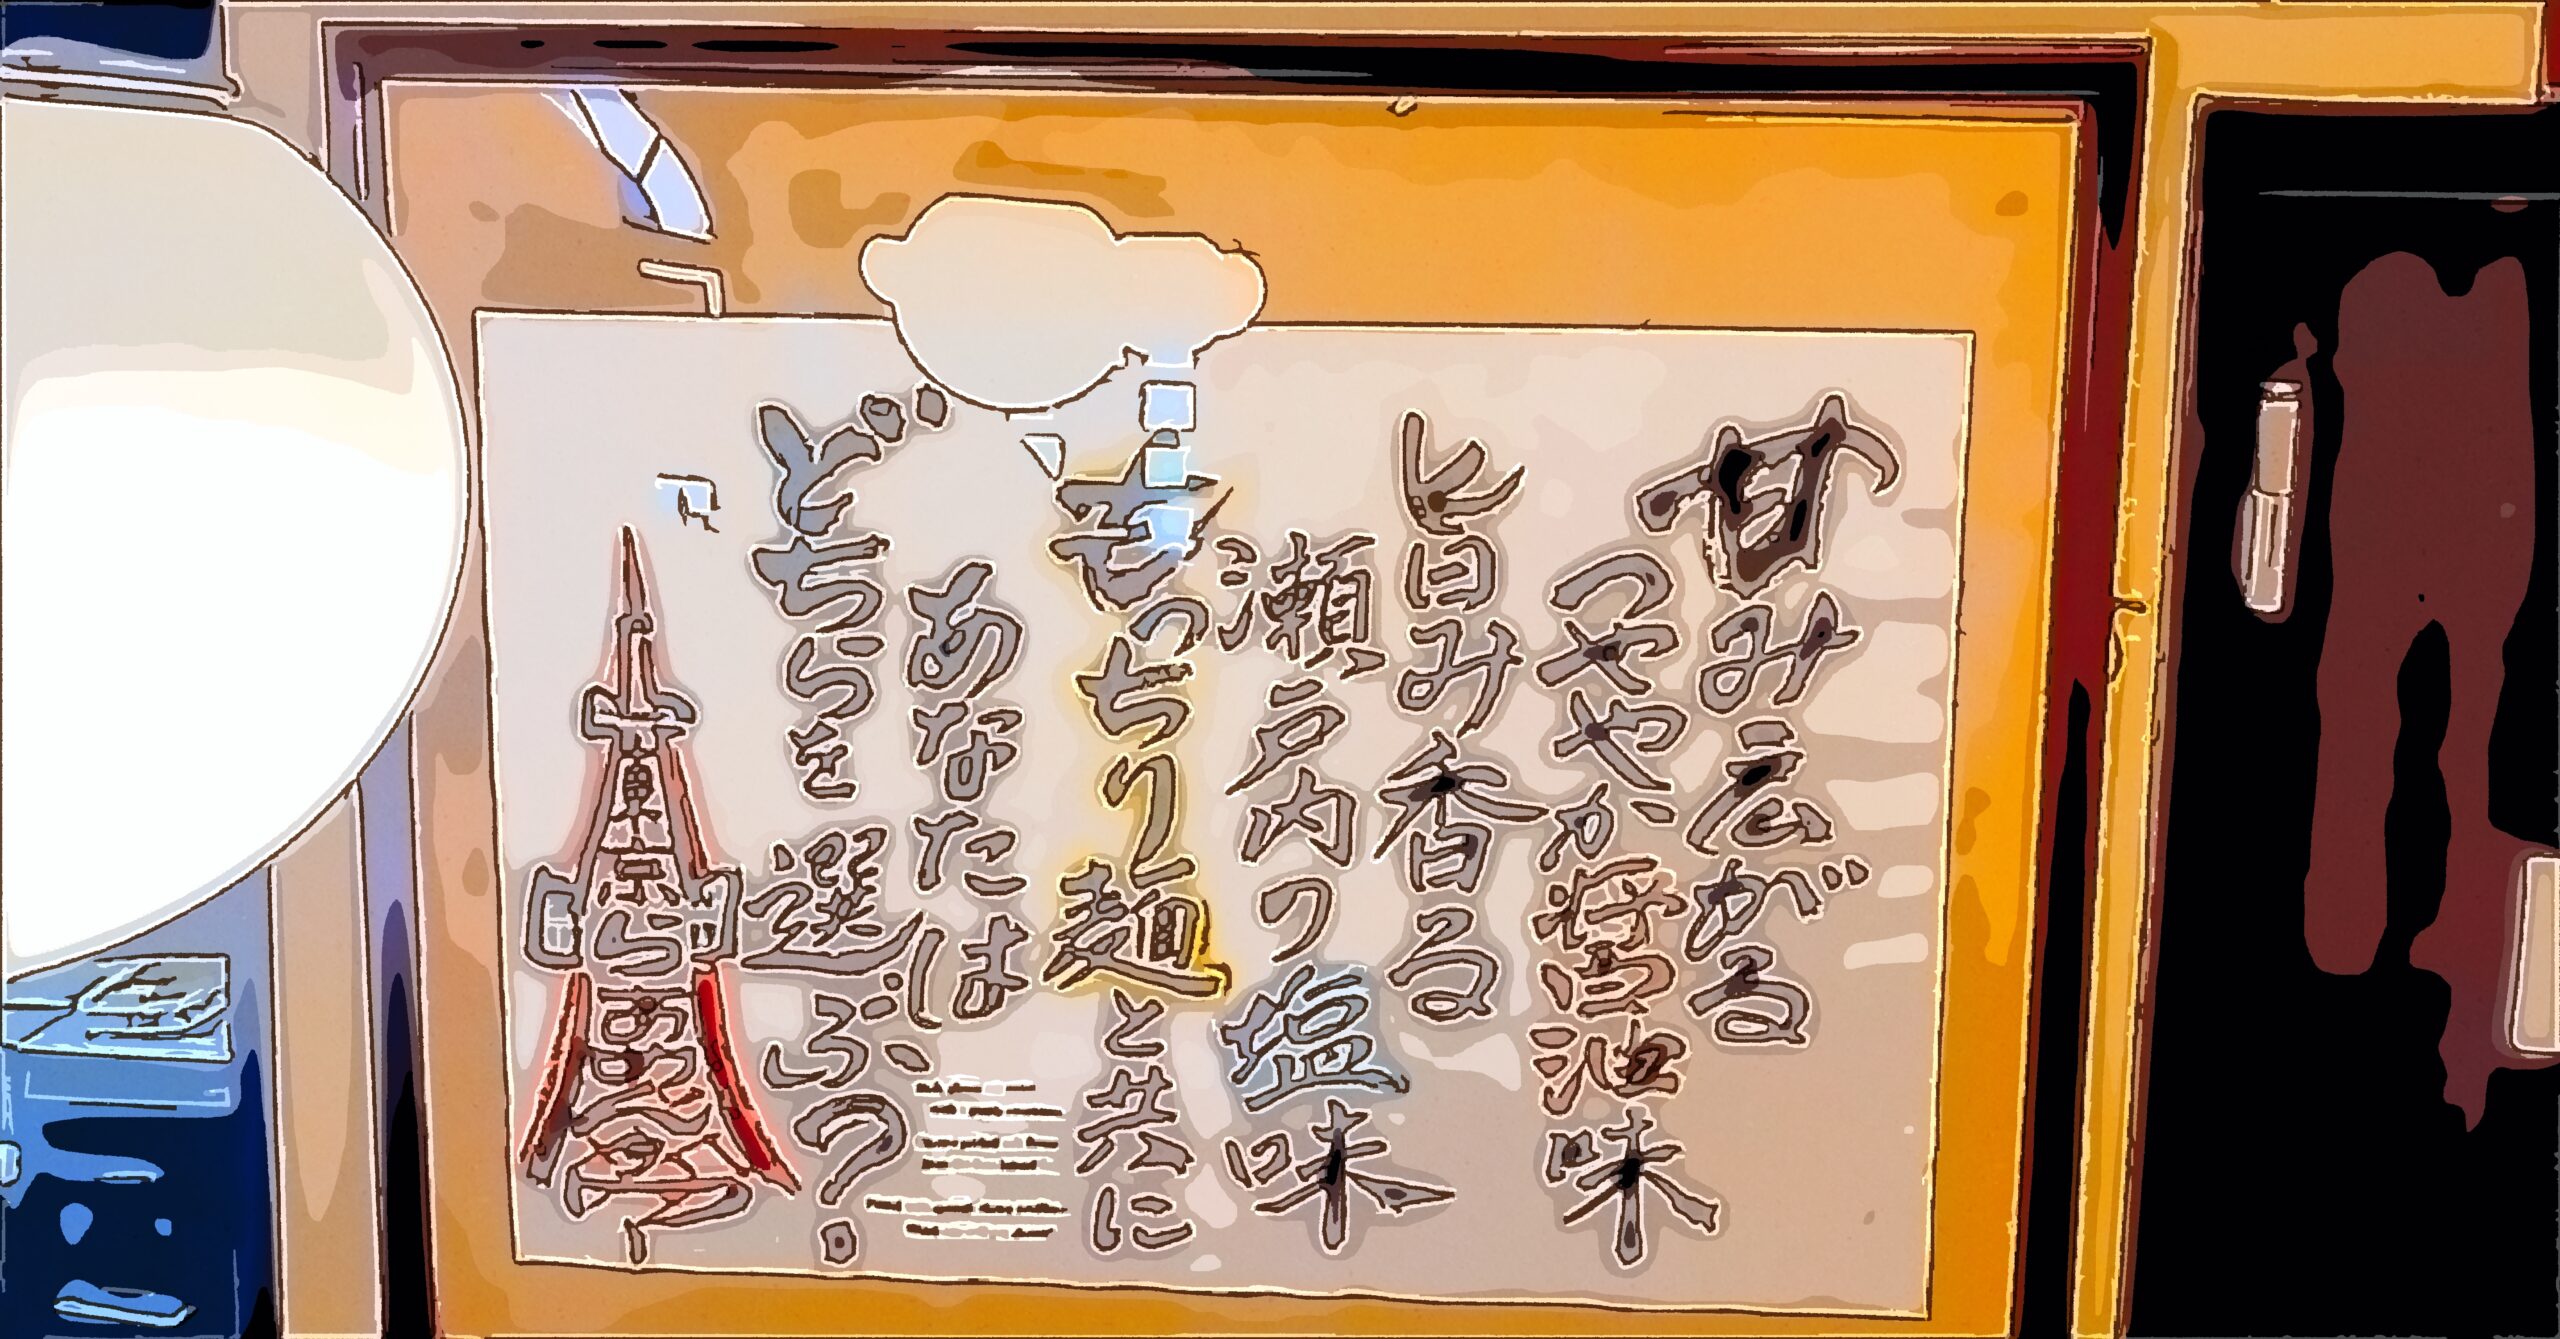 甘み広がる
つややか醤油味
旨み香る
瀬戸内の塩味
もっちり麺と共に
あなたは
どちらを選ぶ?
東京らあめん